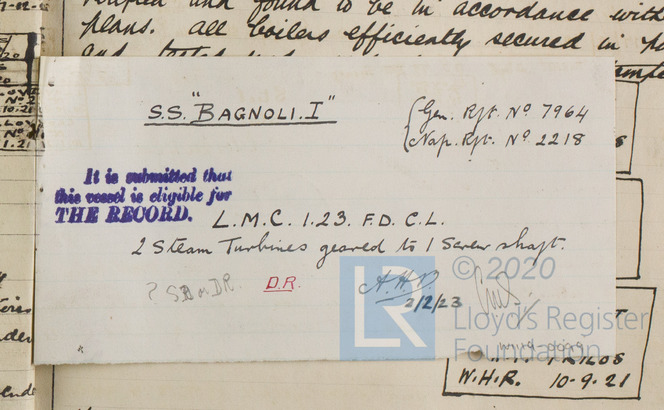 and found to be in accordance with
plans. all boilers efficiently secured in
and
S.S. "BAGNOLI. I"
Gen. Rpt. No 7964
Nap. Rpt. No 2218
It is submitted that
this vessel is eligible for
THE RECORD.
L.M.C. 1.23. F.D. C.L.
2 Steam Turbines geared to 1 Screw shaft.
? SB or DR.
D.R.
A.H.B.
2/2/23
© 2020
LR
Lloyd's Register
Foundation
W.H.R. 10-9.21